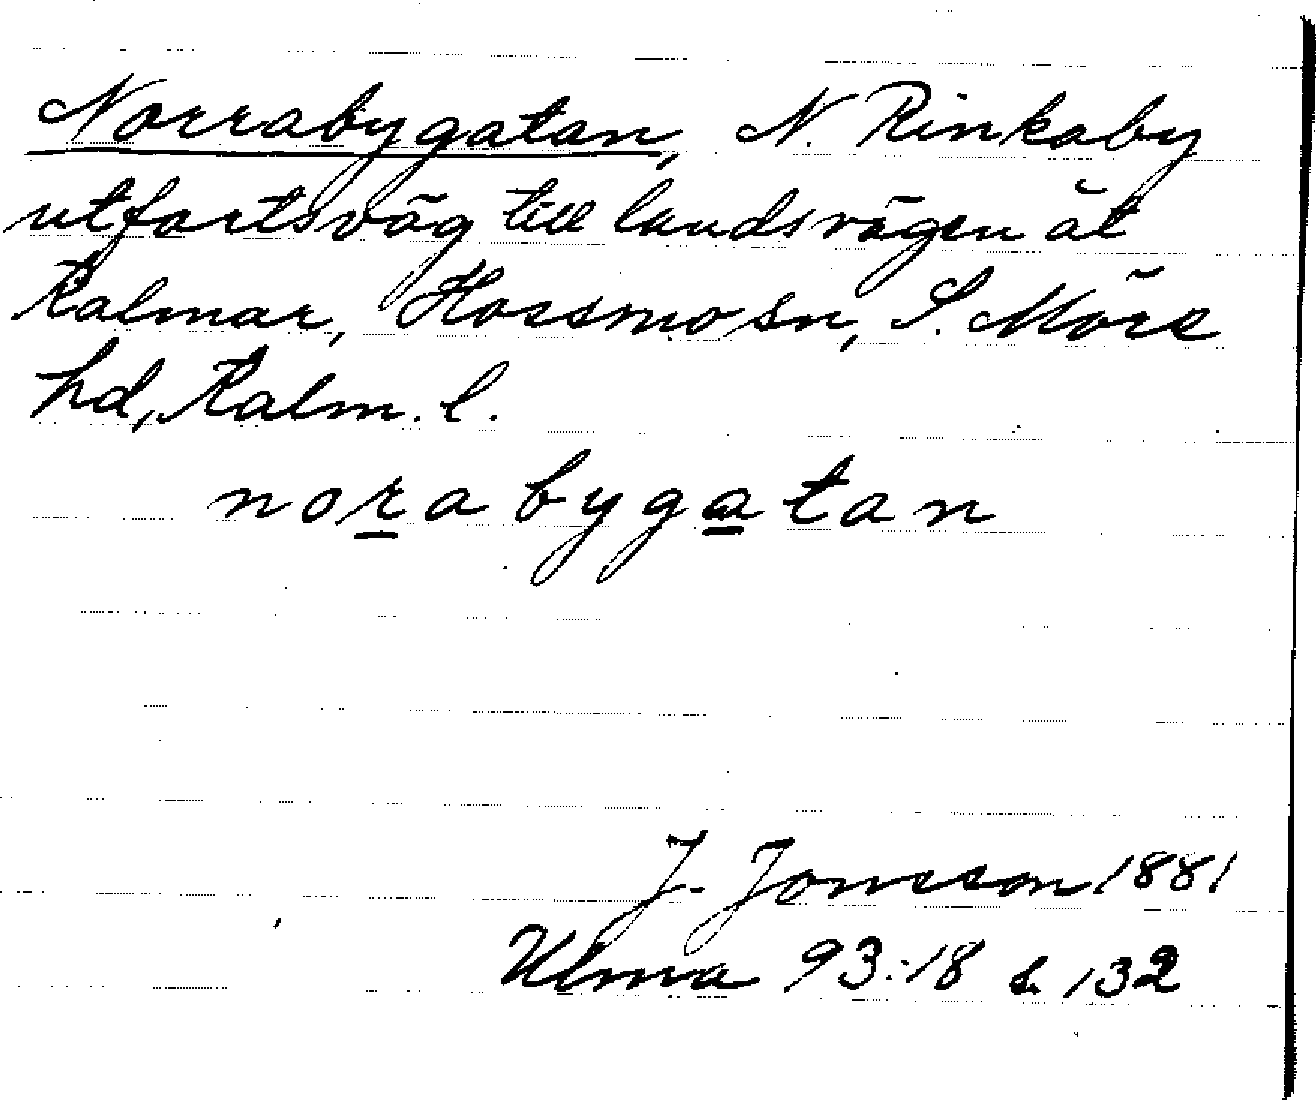 Norrabygatan, N. Rinkaby
utfartsväg till landsvägen åt
Kalmar, Hossmo sn, S. Möre
hd, Kalm. l.
norabygatan
J. Jonsson 1881
Ulma 93:18 s. 132